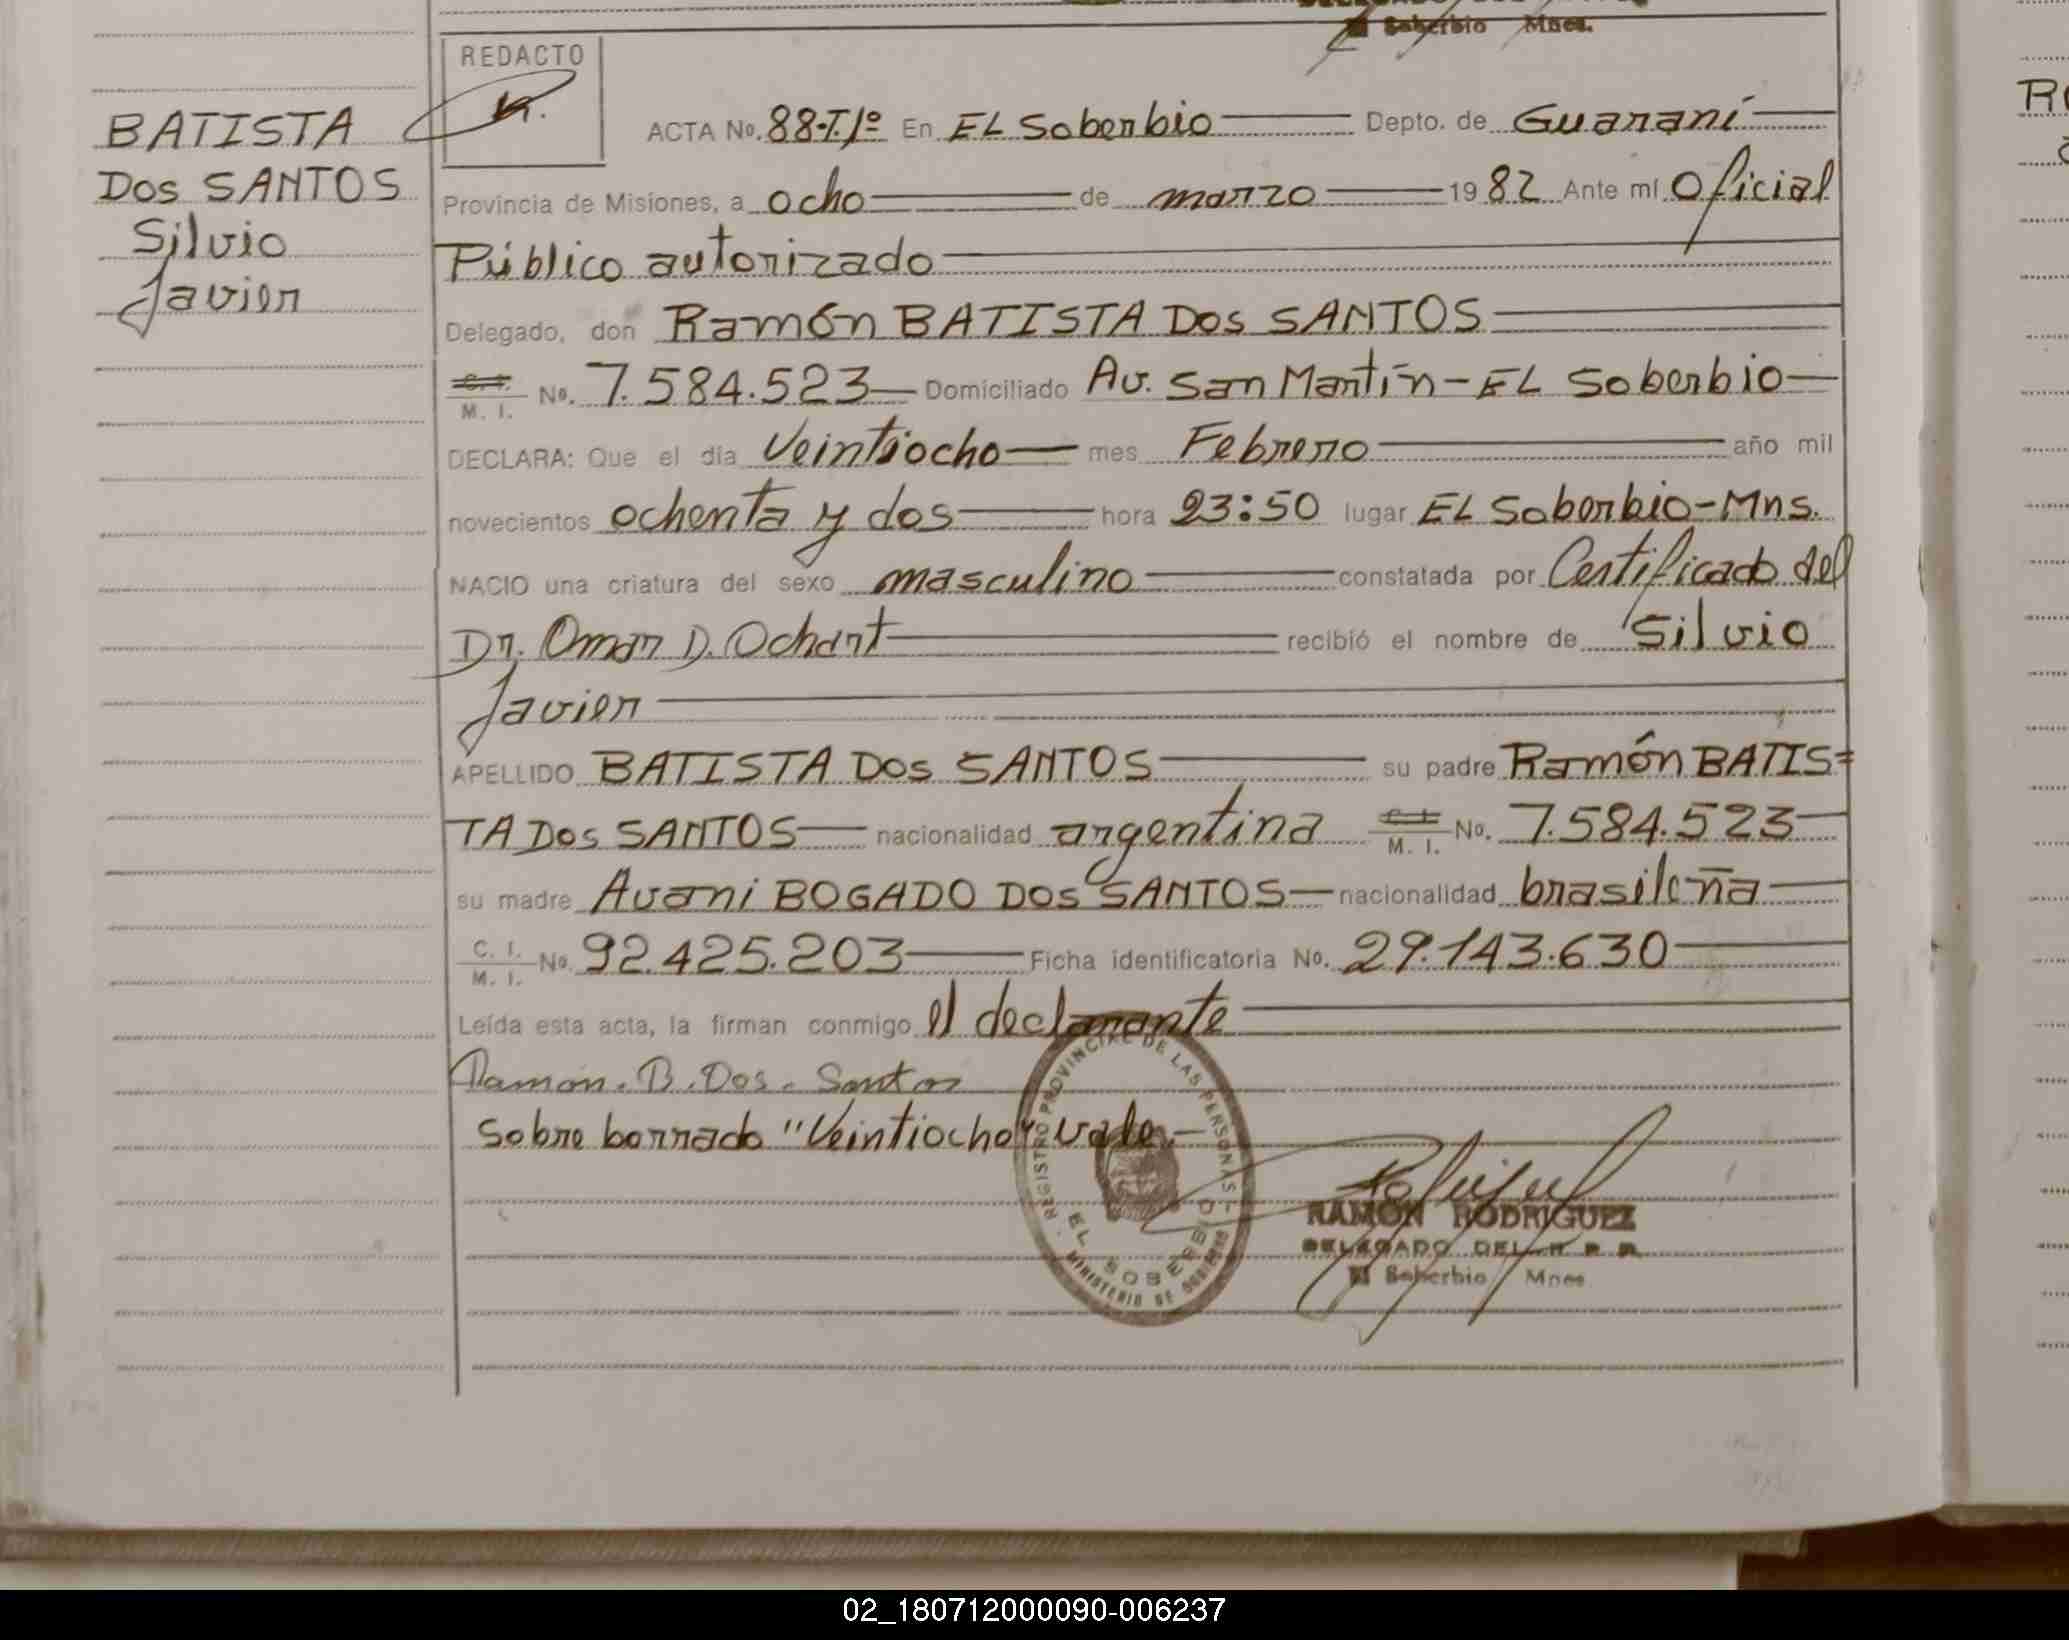 Soberbio Mnes.
REDACTO
BATISTA
Dos SANTOS
Silvio
Javier
ACTA No. 88-T.1º En EL Soberbio Depto. de Guaraní
Provincia de Misiones, a ocho de marzo 1982 Ante mí Oficial
Público autorizado
Delegado, don Ramón BATISTA Dos SANTOS
C. I. M. I. No. 7.584.523 Domiciliado Av. San Martín - EL Soberbio
DECLARA: Que el día Veintiocho mes Febrero año mil
novecientos ochenta y dos hora 23:50 lugar EL Soberbio-Mns.
NACIO una criatura del sexo masculino constatada por Certificado del
Dr. Omar D. Ochart recibió el nombre de Silvio
Javier
APELLIDO BATISTA Dos SANTOS su padre Ramón BATIS=
TA Dos SANTOS nacionalidad argentina C. I. M. I. No. 7.584.523
su madre Avani BOGADO DOS SANTOS nacionalidad brasileña
C. I. M. I. No. 92.425.203 Ficha identificatoria No. 29.143.630
Leída esta acta, la firman conmigo el declarante
Ramon. B. Dos. Santos
Sobre borrado "Veintiocho" vale.-
REGISTRO PROVINCIAL DE LAS PERSONAS
EL SOBERBIO
MINISTERIO DE GOBIERNO
RAMON RODRIGUEZ
DELEGADO DEL R. P. P.
El Soberbio Mnes.
02_180712000090-006237